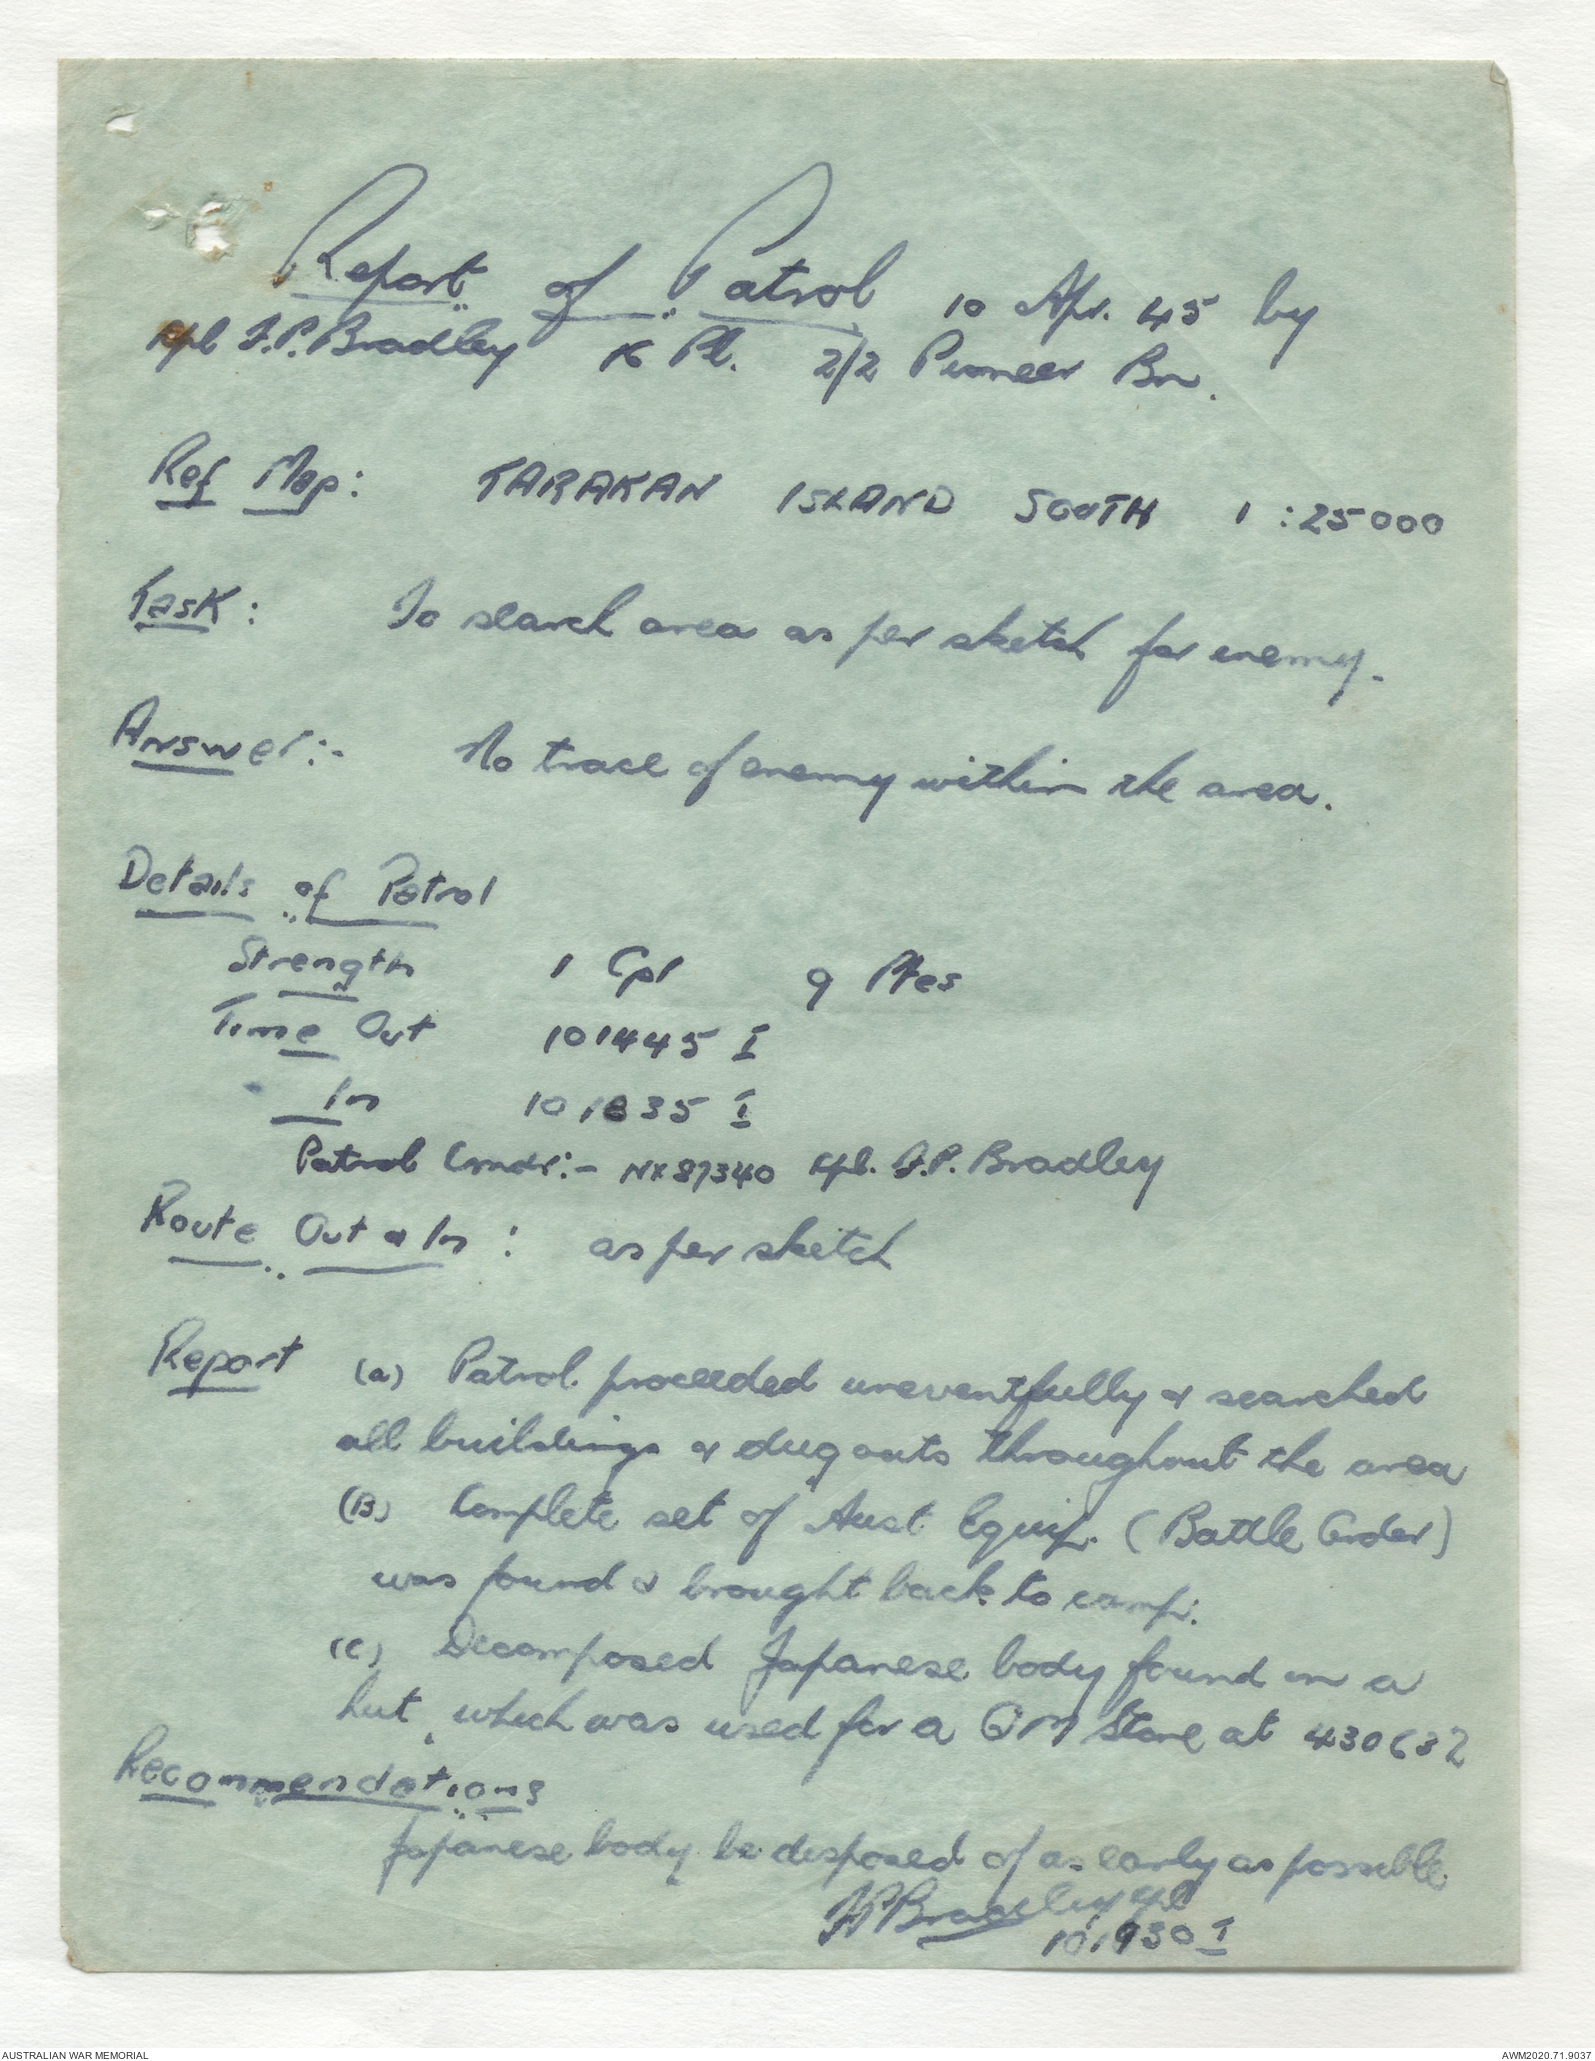 Report of Patrol 10 Apr. 45 by
Cpl F.P. Bradley 16 Pl. 2/2 Pioneer Bn.
Ref Map: TARAKAN ISLAND SOUTH 1:25000
Task: To search area as per sketch for enemy.
Answer:- No trace of enemy within the area.
Details of Patrol
Strength 1 Cpl 9 Ptes
Time Out 101445 I
In 101835 I
Patrol Comdr:- NX87340 Cpl. F.P. Bradley
Route Out & In : as per sketch
Report (a) Patrol proceeded uneventfully & searched
all buildings & dug outs throughout the area
(B) Complete set of Aust Equip. (Battle Order)
was found & brought back to camp.
(C) Decomposed Japanese body found in a
hut, which was used for a QM Store at 430632
Recommendations
Japanese body be disposed of as early as possible.
FP Bradley Cpl
101930 I
AUSTRALIAN WAR MEMORIAL
AWM2020.71.9037